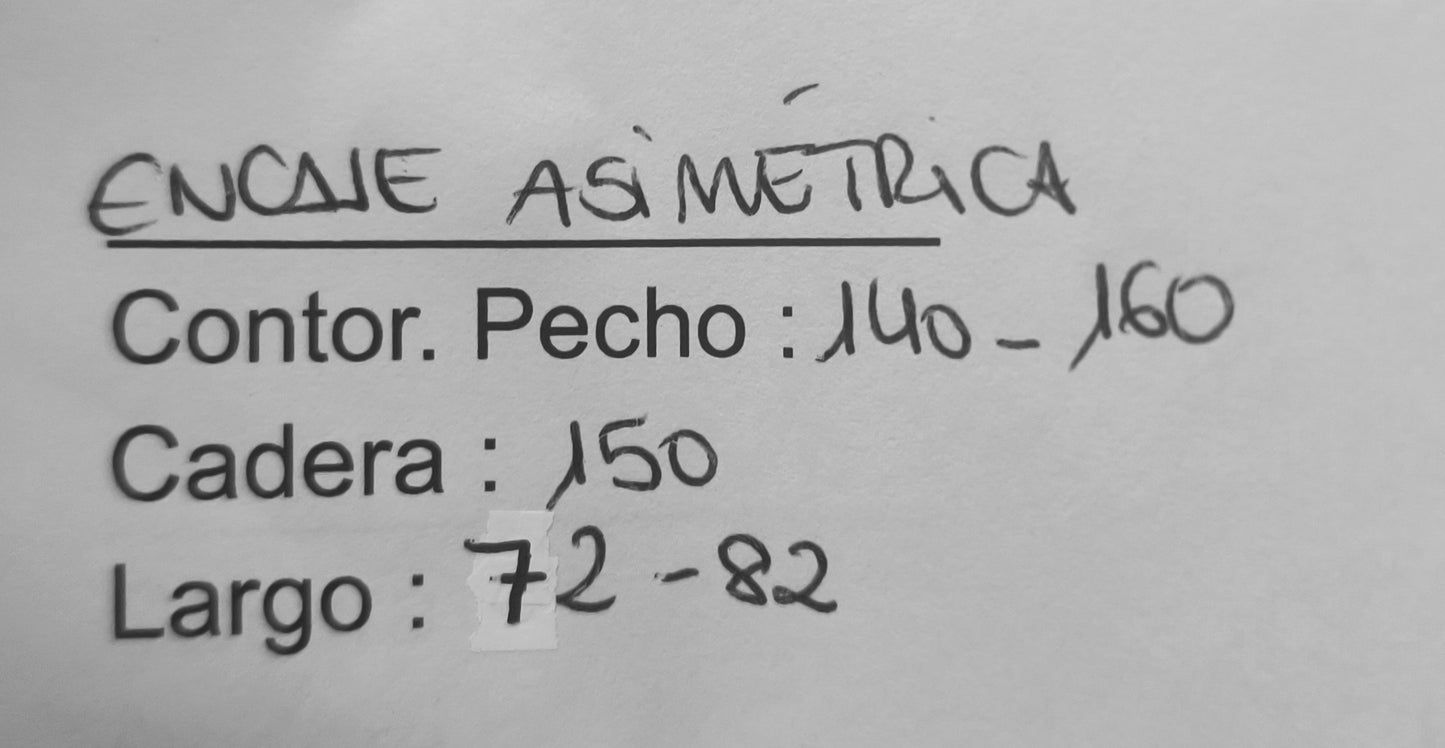 ENCAJE ASIMÉTRICA
Contor. Pecho : 140 - 160
Cadera : 150
Largo : 72 - 82